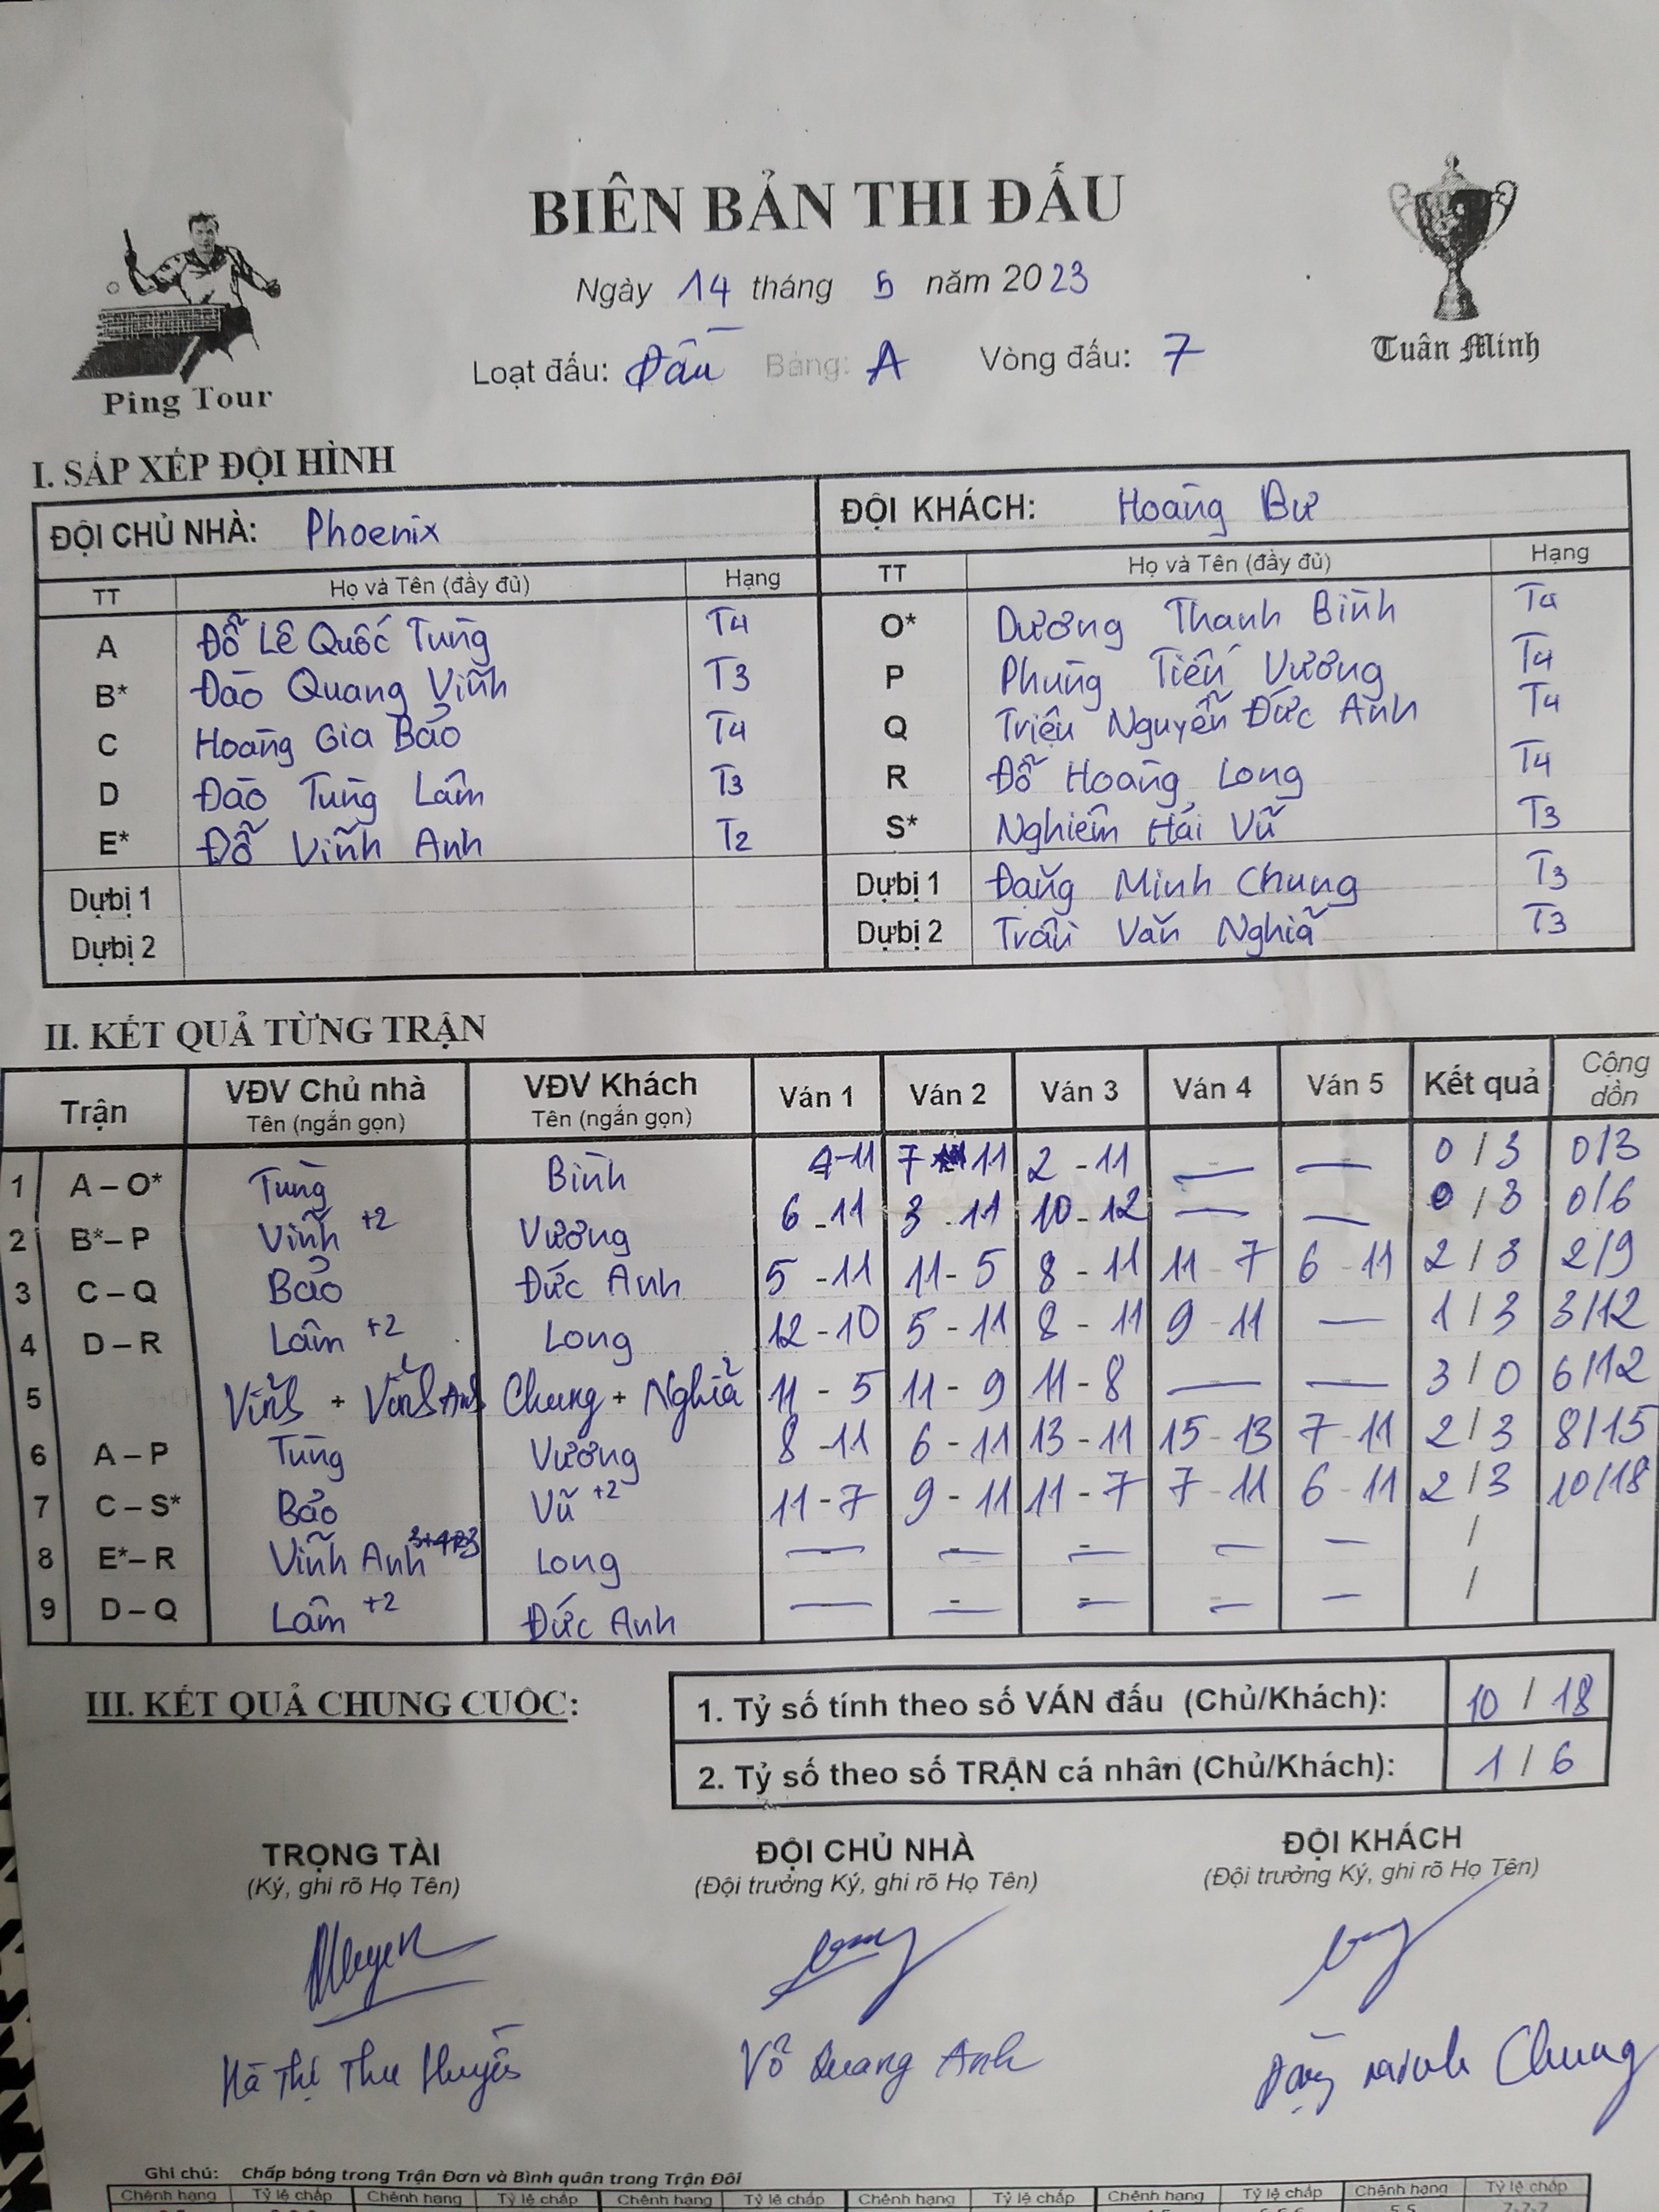 BIÊN BẢN THI ĐẤU
Ngày 14 tháng 5 năm 2023
Loạt đấu: Đầu Bảng: A Vòng đấu: 7
Ping Tour
Tuân Minh
I. SẮP XẾP ĐỘI HÌNH
ĐỘI CHỦ NHÀ: Phoenix ĐỘI KHÁCH: Hoàng Bư
TT Họ và Tên (đầy đủ) Hạng TT Họ và Tên (đầy đủ) Hạng
A Đỗ Lê Quốc Tùng T4 O* Dương Thanh Bình T4
B* Đào Quang Vinh T3 P Phùng Tiến Vương T4
C Hoàng Gia Bảo T4 Q Triệu Nguyễn Đức Anh T4
D Đào Tùng Lâm T3 R Đỗ Hoàng Long T4
E* Đỗ Vinh Anh T2 S* Nghiêm Hải Vũ T3
Dự bị 1 Dự bị 1 Đặng Minh Chung T3
Dự bị 2 Dự bị 2 Trần Văn Nghĩa T3
II. KẾT QUẢ TỪNG TRẬN
Trận VĐV Chủ nhà VĐV Khách Ván 1 Ván 2 Ván 3 Ván 4 Ván 5 Kết quả Cộng dồn
Tên (ngắn gọn) Tên (ngắn gọn)
1 A – O* Tùng Bình 4-11 7 11 2-11 — — 0/3 0/3
2 B* – P Vinh +2 Vương 6-11 3-11 10-12 — — 0/3 0/6
3 C – Q Bảo Đức Anh 5-11 11-5 8-11 11-7 6-11 2/3 2/9
4 D – R Lâm +2 Long 12-10 5-11 8-11 9-11 — 1/3 3/12
5 Vinh + Vinh Anh Chung + Nghĩa 11-5 11-9 11-8 — — 3/0 6/12
6 A – P Tùng Vương 8-11 6-11 13-11 15-13 7-11 2/3 8/15
7 C – S* Bảo Vũ +2 11-7 9-11 11-7 7-11 6-11 2/3 10/18
8 E* – R Vinh Anh Long — — — — — /
9 D – Q Lâm +2 Đức Anh — — — — — /
III. KẾT QUẢ CHUNG CUỘC:
1. Tỷ số tính theo số VÁN đấu (Chủ/Khách): 10 / 18
2. Tỷ số theo số TRẬN cá nhân (Chủ/Khách): 1 / 6
TRỌNG TÀI ĐỘI CHỦ NHÀ ĐỘI KHÁCH
(Ký, ghi rõ Họ Tên) (Đội trưởng Ký, ghi rõ Họ Tên) (Đội trưởng Ký, ghi rõ Họ Tên)
Hà Thị Thu Huyền Võ Quang Anh Đặng Minh Chung
Ghi chú: Chấp bóng trong Trận Đơn và Bình quân trong Trận Đôi
Chênh hạng Tỷ lệ chấp Chênh hạng Tỷ lệ chấp Chênh hạng Tỷ lệ chấp Chênh hạng Tỷ lệ chấp Chênh hạng Tỷ lệ chấp Chênh hạng Tỷ lệ chấp